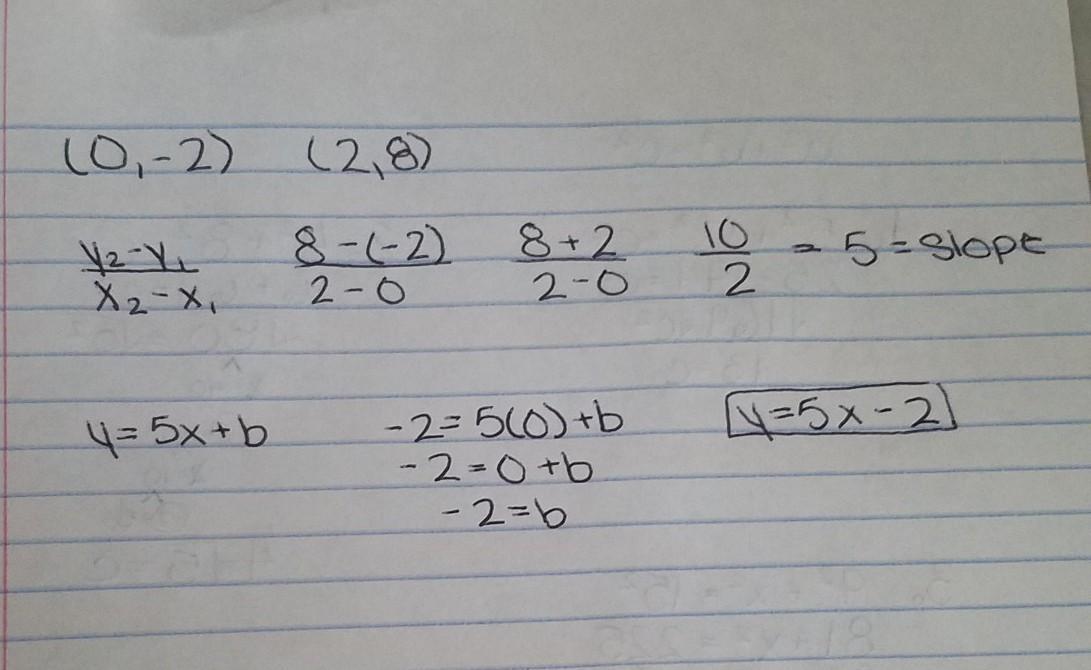 (0,-2) (2,8)
y₂-y₁/x₂-x₁ 8-(-2)/2-0 8+2/2-0 10/2 = 5 = slope
y=5x+b -2=5(0)+b y=5x-2
-2=0+b
-2=b